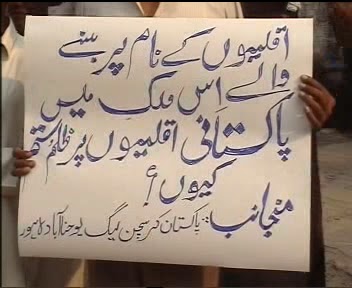 اقلیتوں کے نام پر بننے
والے اس ملک میں
پاکستانی اقلیتوں پر ظلم
کیوں؟
منجانب: پاکستان کرسچن لیگ یوحنا آباد لاہور